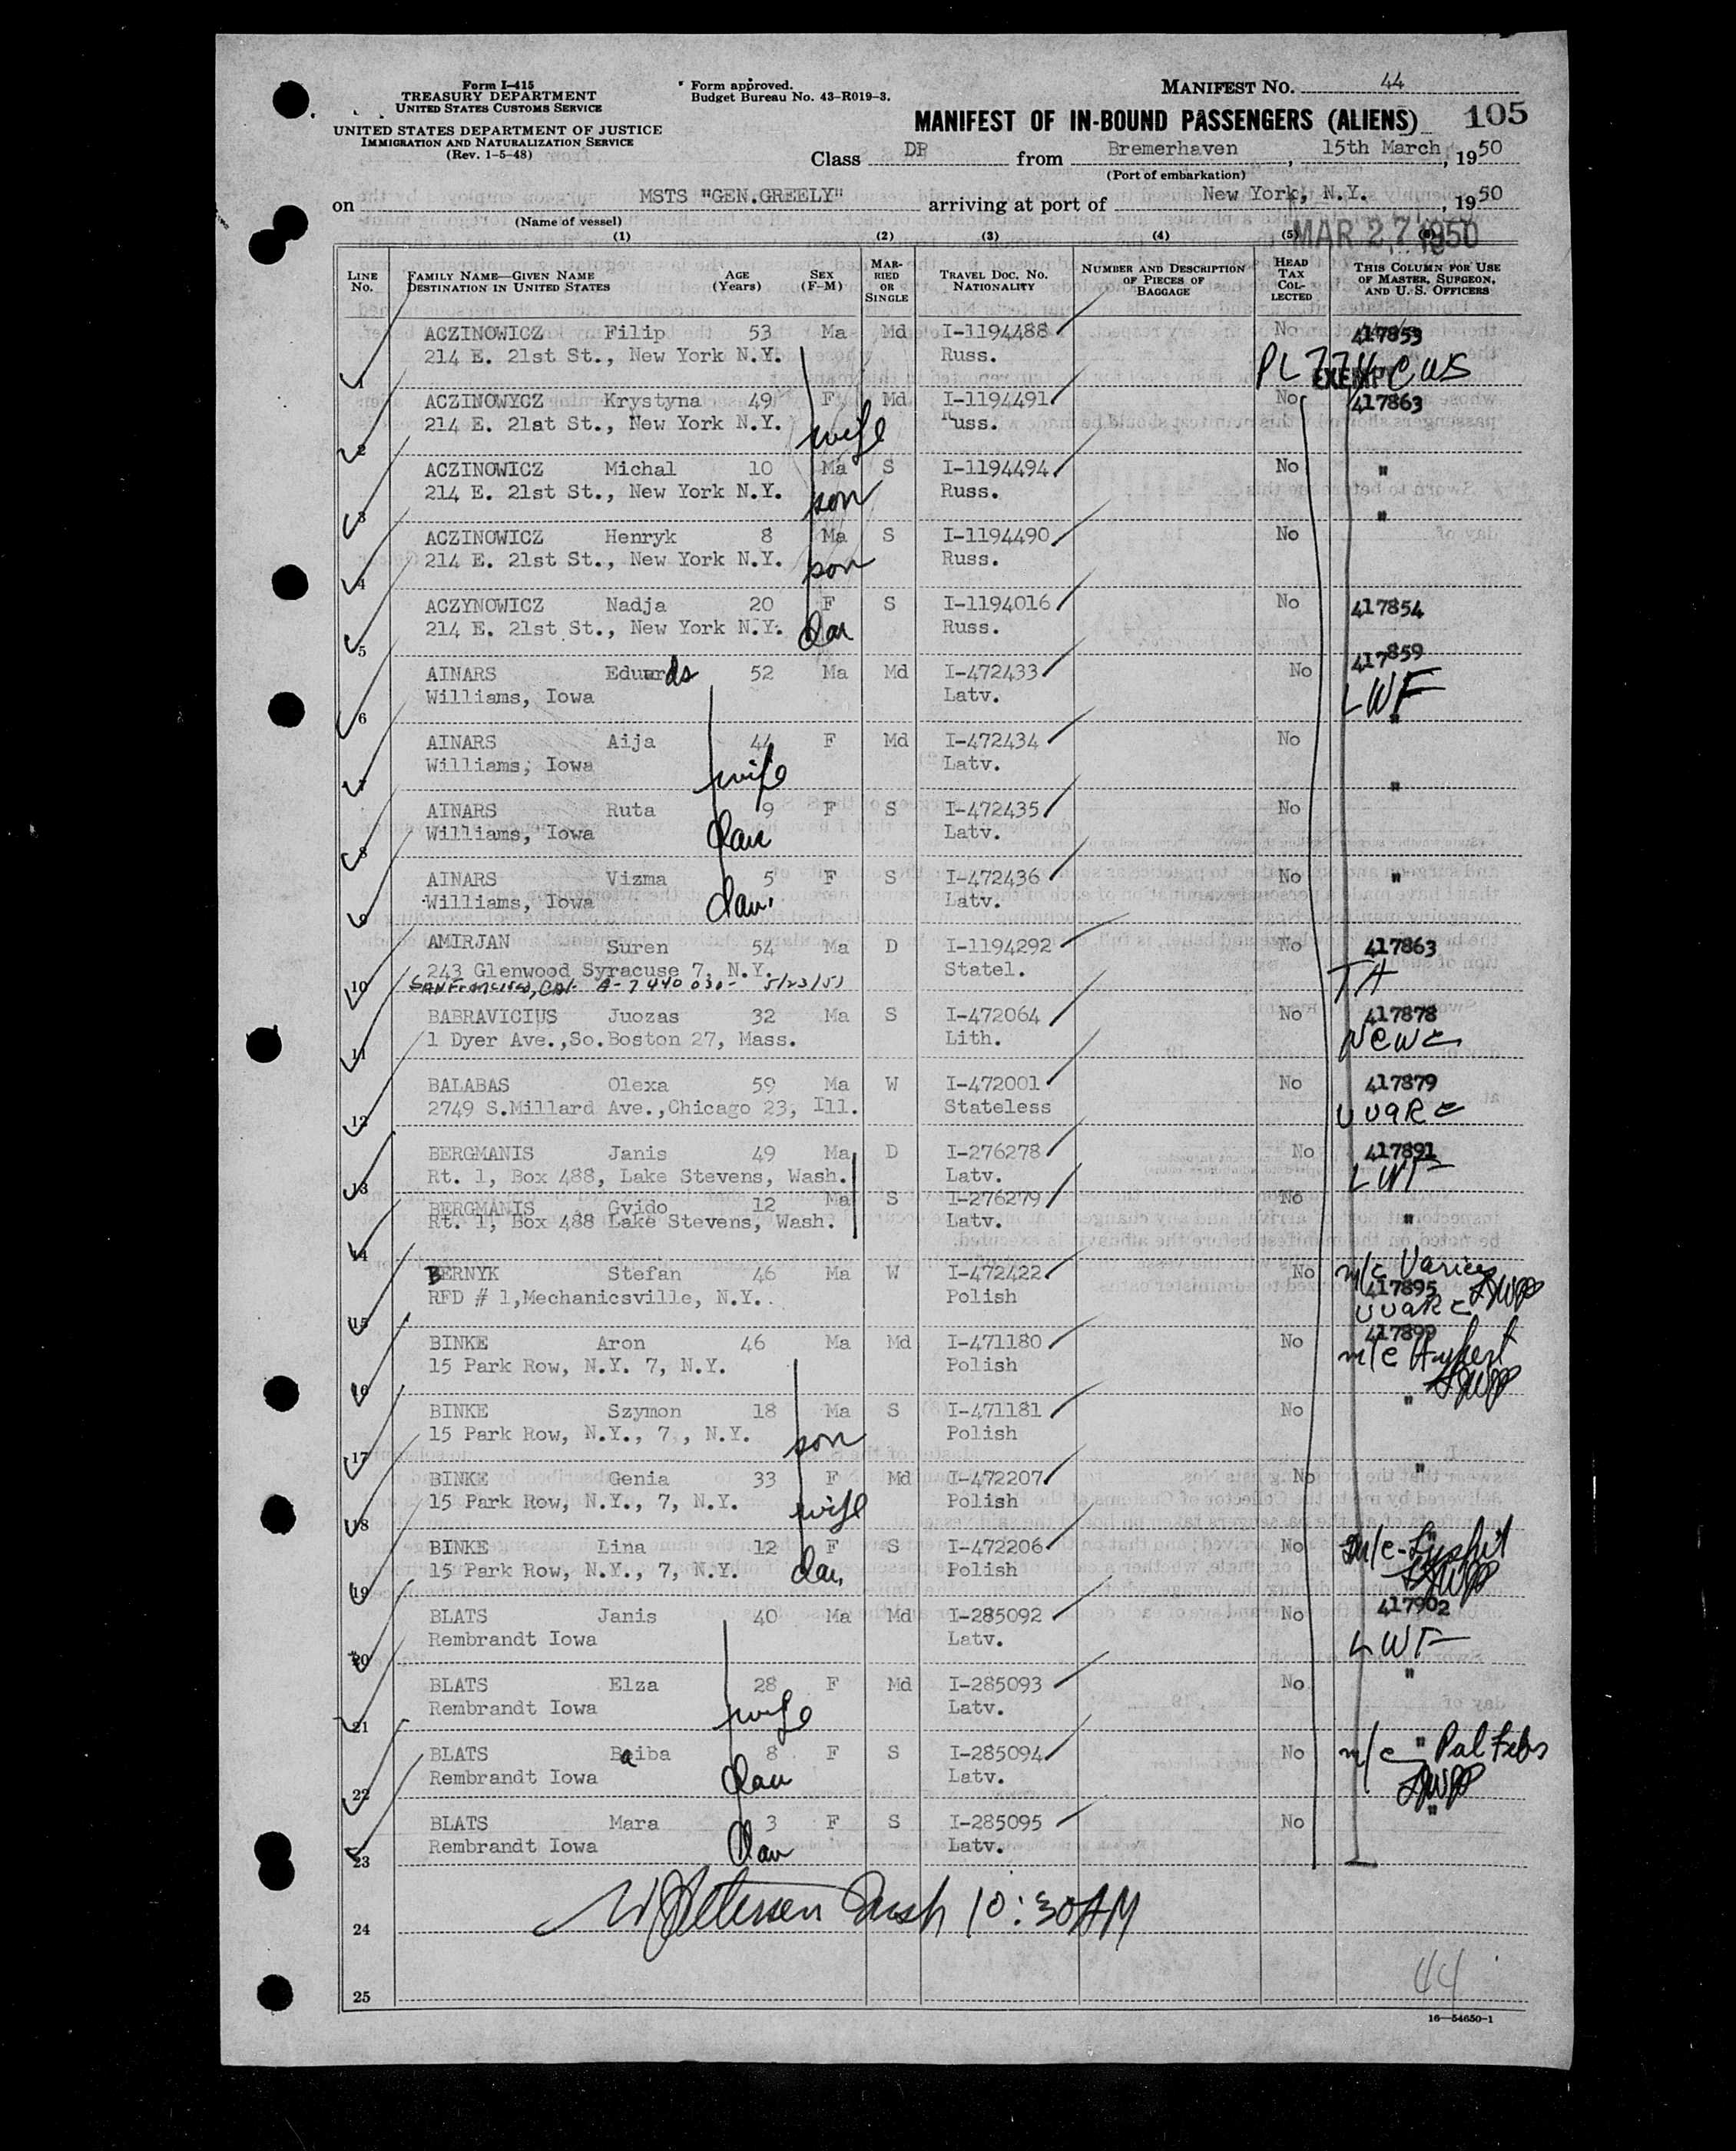 Form I-415
TREASURY DEPARTMENT
UNITED STATES CUSTOMS SERVICE
UNITED STATES DEPARTMENT OF JUSTICE
IMMIGRATION AND NATURALIZATION SERVICE
(Rev. 1-5-48)
Form approved.
Budget Bureau No. 43-R019-3.
MANIFEST NO. 44
MANIFEST OF IN-BOUND PASSENGERS (ALIENS) 105
Class DP from Bremerhaven, 15th March, 1950
(Port of embarkation)
on MSTS "GEN.GREELY" arriving at port of New York, N.Y., 1950
(Name of vessel)
MAR 27 1950
(1) (2) (3) (4) (5) (6)
LINE No. FAMILY NAME—GIVEN NAME DESTINATION IN UNITED STATES AGE (Years) SEX (F-M) MARRIED OR SINGLE TRAVEL DOC. NO. NATIONALITY NUMBER AND DESCRIPTION OF PIECES OF BAGGAGE HEAD TAX COLLECTED THIS COLUMN FOR USE OF MASTER, SURGEON, AND U. S. OFFICERS
ACZINOWICZ Filip 53 Ma Md I-1194488 No 417853
1 214 E. 21st St., New York N.Y. Russ. PL 774 CWS EXEMPT
ACZINOWYCZ Krystyna 49 F Md I-1194491 No 417863
2 214 E. 21at St., New York N.Y. wife Russ.
ACZINOWICZ Michal 10 Ma S I-1194494 No "
3 214 E. 21st St., New York N.Y. son Russ. "
ACZINOWICZ Henryk 8 Ma S I-1194490 No
4 214 E. 21st St., New York N.Y. son Russ.
ACZYNOWICZ Nadja 20 F S I-1194016 No 417854
5 214 E. 21st St., New York N.Y. dau Russ.
AINARS Eduards 52 Ma Md I-472433 No 417859
6 Williams, Iowa Latv. LWF "
AINARS Aija 44 F Md I-472434 No
7 Williams, Iowa wife Latv. "
AINARS Ruta 9 F S I-472435 No
8 Williams, Iowa dau Latv.
AINARS Vizma 5 F S I-472436 No "
9 Williams, Iowa dau. Latv.
AMIRJAN Suren 54 Ma D I-1194292 No 417863
243 Glenwood Syracuse 7, N.Y. Statel. TH
10 San Francisco, Cal. A-7440030- 5/23/51
BABRAVICIUS Juozas 32 Ma S I-472064 No 417878
11 1 Dyer Ave.,So.Boston 27, Mass. Lith. NCWC
BALABAS Olexa 59 Ma W I-472001 No 417879
12 2749 S.Millard Ave.,Chicago 23, Ill. Stateless UUARC
BERGMANIS Janis 49 Ma D I-276278 No 417891
13 Rt. 1, Box 488, Lake Stevens, Wash. Latv. LWF
BERGMANIS Gvido 12 Ma S I-276279 No
14 Rt. 1, Box 488 Lake Stevens, Wash. Latv. "
BERNYK Stefan 46 Ma W I-472422 No m/c Varices 417895
15 RFD # 1,Mechanicsville, N.Y. Polish UUARC
BINKE Aron 46 Ma Md I-471180 No 417899
16 15 Park Row, N.Y. 7, N.Y. Polish m/c
BINKE Szymon 18 Ma S I-471181 No "
17 15 Park Row, N.Y., 7, N.Y. son Polish
BINKE Genia 33 F Md I-472207 No "
18 15 Park Row, N.Y., 7, N.Y. wife Polish
BINKE Lina 12 F S I-472206 No m/c
19 15 Park Row, N.Y., 7, N.Y. dau. Polish
BLATS Janis 40 Ma Md I-285092 No 417902
20 Rembrandt Iowa Latv. LWF
BLATS Elza 28 F Md I-285093 No "
21 Rembrandt Iowa wife Latv.
BLATS Baiba 8 F S I-285094 No m/c "
22 Rembrandt Iowa dau Latv.
BLATS Mara 3 F S I-285095 No "
23 Rembrandt Iowa dau Latv.
24 10:30AM
44
25
16—54650-1